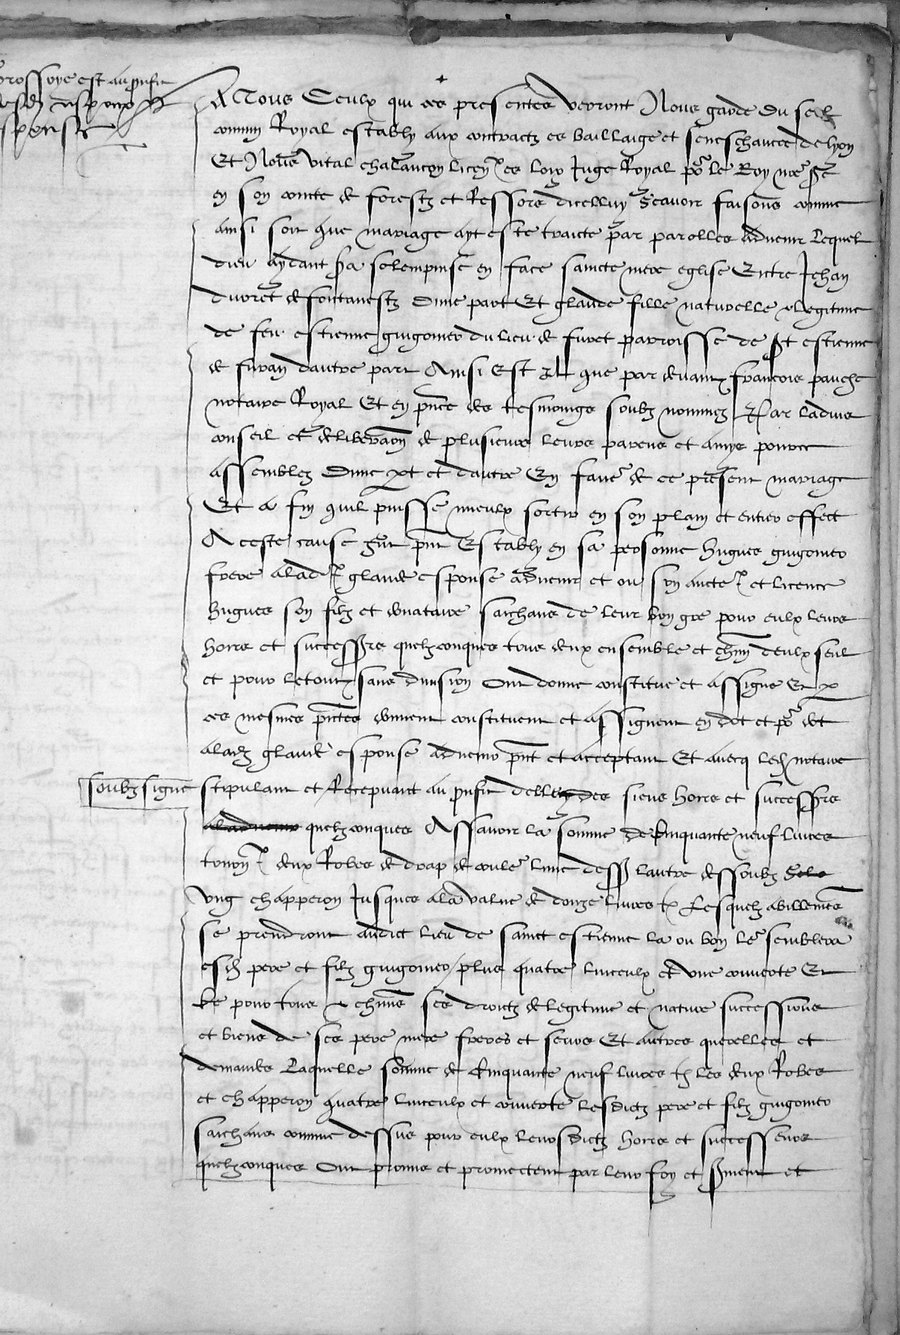 grossoye est au proufit
desd espoux
espouse
A Tous Ceulx qui ces presentes verront Nous garde du seel
commun Royal estably aux contractz es bailliaige et seneschaucee de lyon
Et Vital chalancon licen. es loix Juge Royal por le Roy nre Sr
en son conte de forestz et Ressors dicelluy Scavoir faisons comme
ainsi soit que mariage ayt este traicte par parolles advenir lequel
dieu aydant sa solempnise en face saincte mere eglise Entre Jehan
de fontanestz Dune part Et glaude fille naturelle & legitime
de feu estienne guigonet du lieu de furet parroisse de St estienne
de furan dautre part Ainsi Est Il que par devant francois
notaire Royal Et en pnce des tesmoings soubz nommez Par ladvis
conseil et deliberaon de plusieurs leurs parens et amys pource
assemblez Dune pt et dautre En faveur de ce present mariage
Et a fin quil puisse mieulx sortir en son plain et entier effect
A ceste cause Estably en sa personne hugues guigonet
frere a lad glaude espouse advenir et ou son aucte et licence
hugues son filz et donataire saichans de leur bon gre pour eulx leurs
hoirs et successrs quelzconques tous deux ensemble et chun deulx seul
et pour le tout sans division Ont donne constitue et assigne Et p
ces mesmes pntes donnent constituent et assignent en dot et por dot
a lad glaude espouse advenir pnt et acceptant Et avecq led notaire
soubzsigne stipulant et Recepvant au proufit delle des siens hoirs et successrs
quelzconques Assavoir la somme de Cinquante neuf livres
tourn. deux Robes de drap de coulr lune dessus lautre dessoubz
Ung chapperon Jusques a la value de douze livres tz Lesquelz abillemens
se prendront audict lieu de sainct estienne la ou bon le semblera
esd pere et filz guigonet plus quatre linceulx et une couverte Et
ce pour tous & chuns ses droitz de legitime et nature successions
et biens de ses pere mere freres et seurs Et autres querelles et
demandes Laquelle somme de Cinquante neuf livres tz les deux Robes
et chapperon quatre linceulx et couverte lesdictz pere et filz guigonet
saichans comme dessus pour eulx leursdictz hoirs et successeurs
quelzconques Ont promis et promectent par leur foy et serment et